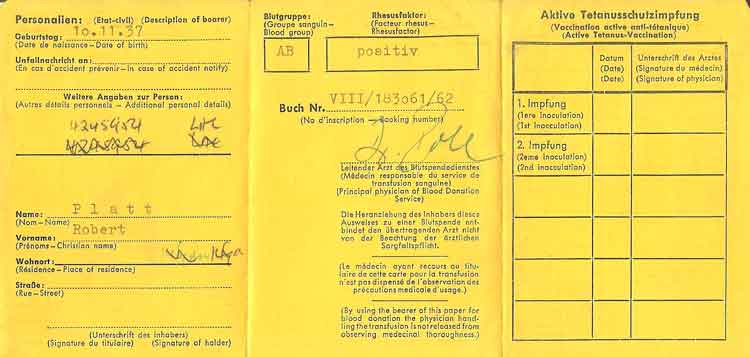 Personalien: (Etat-civil) (Description of bearer)
Geburtstag: 10.11.37
(Date de naissance – Date of birth)
Unfallnachricht an:
(En cas d'accident prévenir – in case of accident notify)
Weitere Angaben zur Person:
(Autres détails personnels – Additional personal details)
Name: Platt
(Nom – Name)
Vorname: Robert
(Prénoms – Christian name)
Wohnort:
(Résidence – Place of residence)
Straße:
(Rue – Street)
(Unterschrift des Inhabers)
(Signature du titulaire) (Signature of holder)
Blutgruppe: Rhesusfaktor:
(Groupe sanguin – Blood group) (Facteur rhesus – Rhesusfactor)
AB positiv
Buch Nr. VIII/183061/62
(No d'inscription – Booking number)
Leitender Arzt des Blutspendedienstes
(Médecin responsable du service de
transfusion sanguine)
(Principal physician of Blood Donation
Service)
Die Heranziehung des Inhabers dieses
Ausweises zu einer Blutspende ent-
bindet den übertragenden Arzt nicht
von der Beachtung der ärztlichen
Sorgfaltspflicht.
(Le médecin ayant recours au titu-
laire de cette carte pour la transfusion
n'est pas dispensé de l'observation des
précautions medicale d'usage.)
(By using the bearer of this paper for
blood donation the physician hand-
ling the transfusion is not released from
observing medecinal thoroughness.)
Aktive Tetanusschutzimpfung
(Vaccination active anti-tétanique)
(Active Tetanus-Vaccination)
Datum Unterschrift des Arztes
(Date) (Signature du médecin)
(Date) (Signature of physician)
1. Impfung
(1ere inoculation)
(1st inoculation)
2. Impfung
(2eme inoculation)
(2nd inoculation)